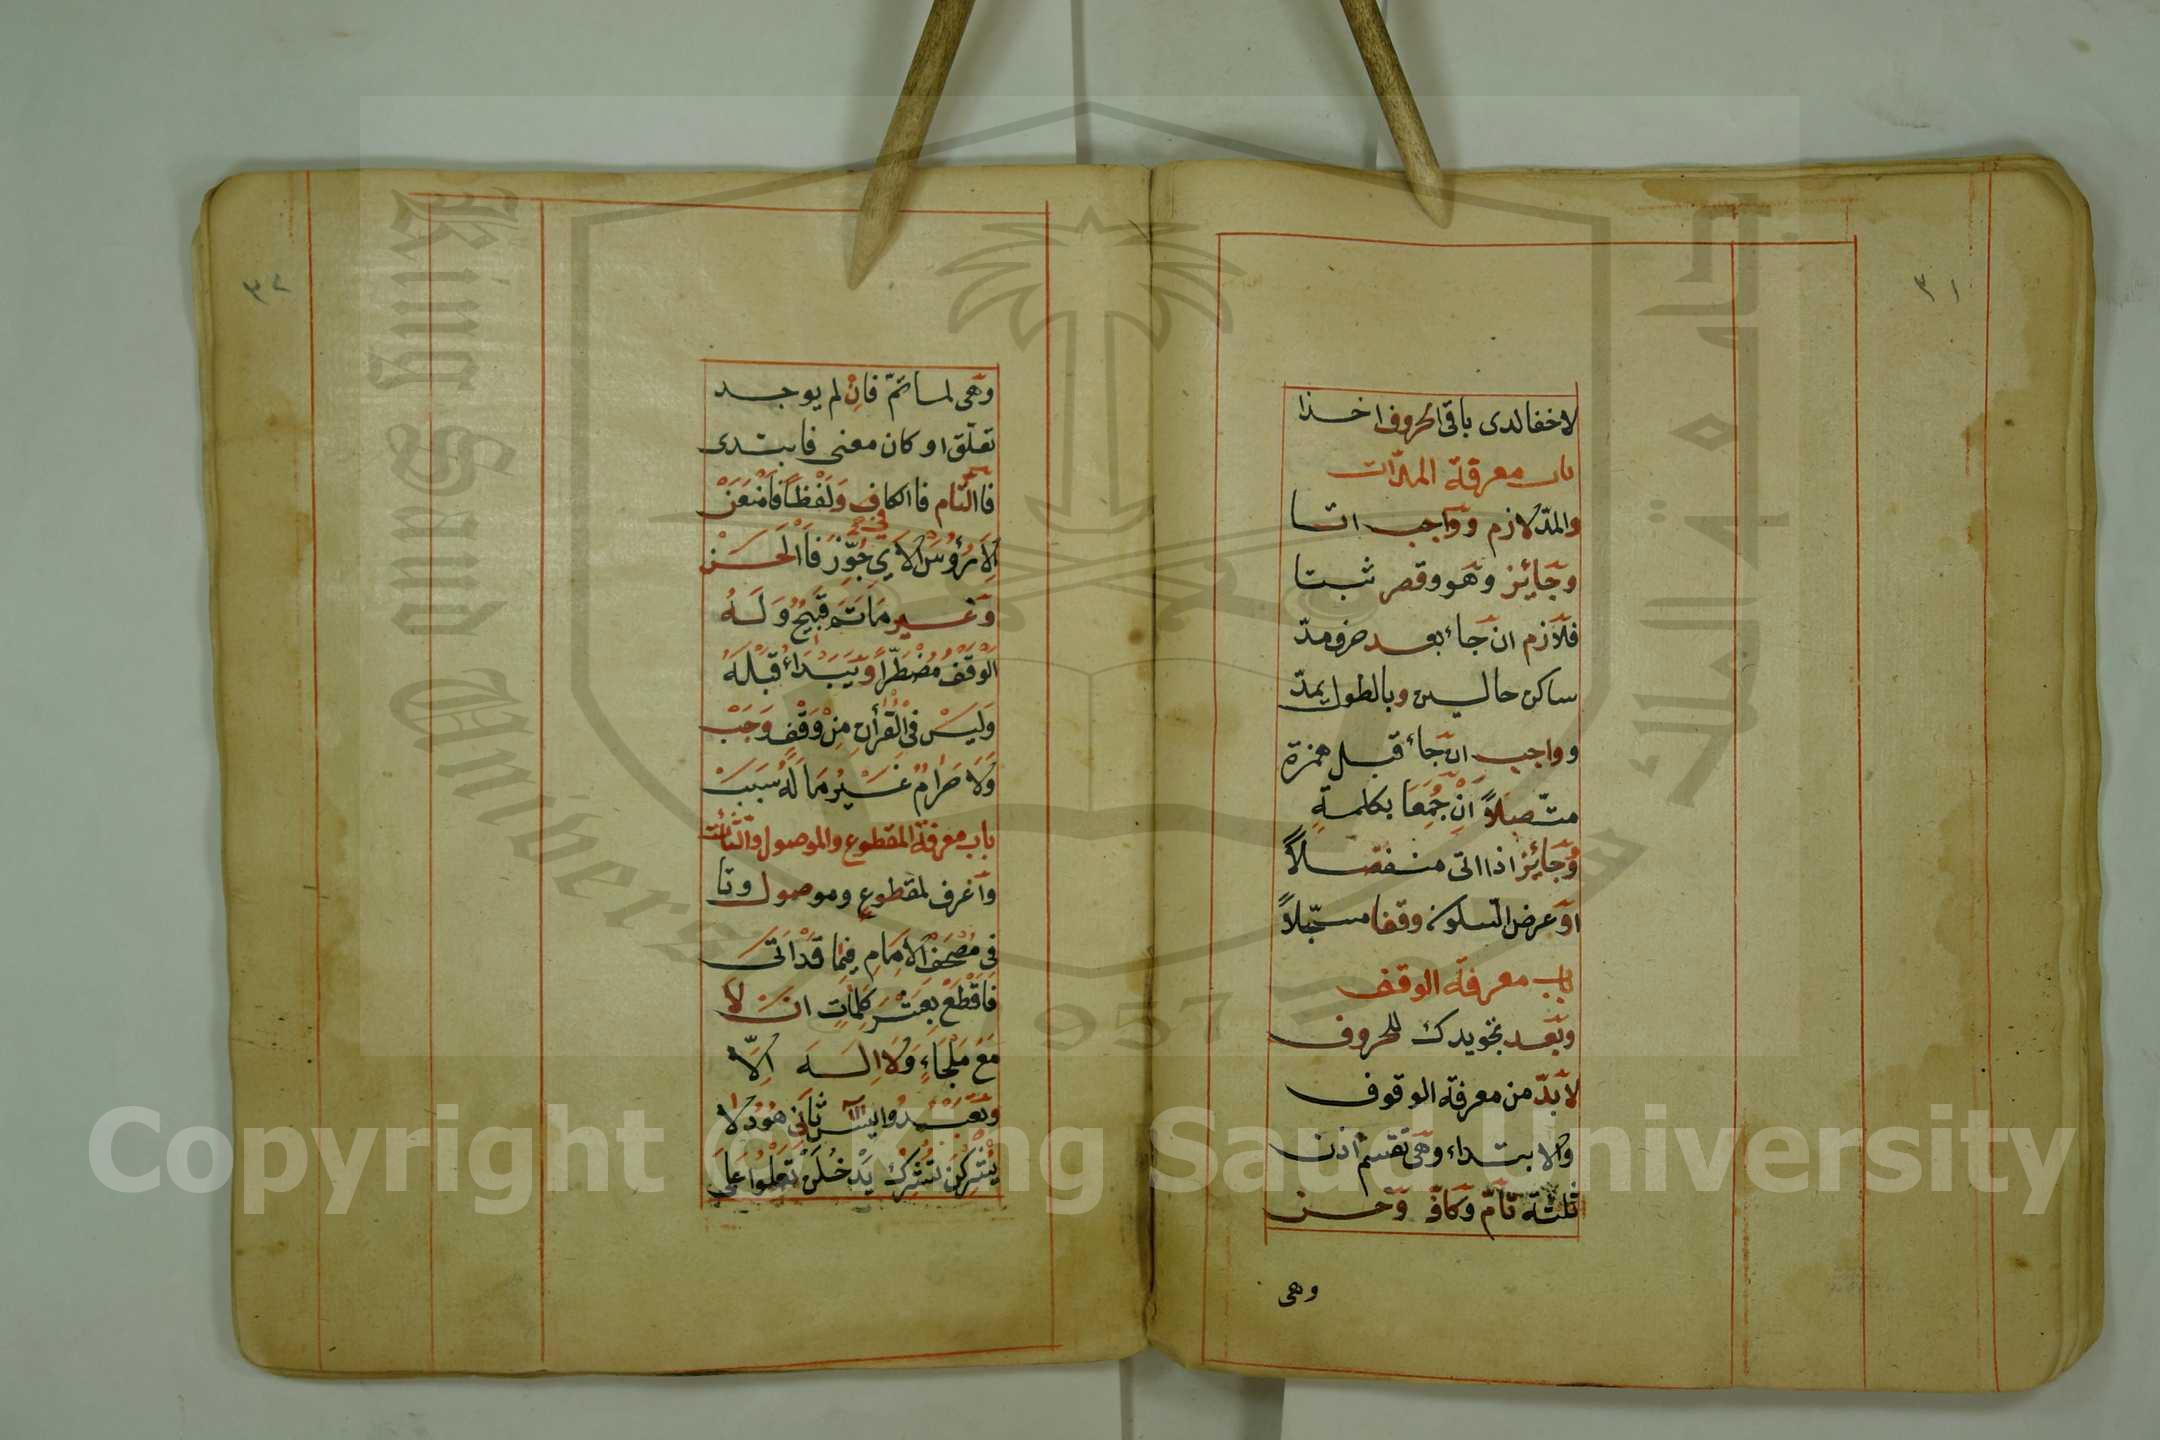 ٣١
لاخفا لدى باقي الحروف اخذا
باب معرفة المدّات
والمدّ لازم وَواجب اتا
وجَايِز وهَو وقصر ثبتا
فلَازم ان جَاء بعد حرف مدّ
ساكن حالين وبالطول يمدّ
وواجب ان جَاء قبل همزة
متّصِلاً اَنِ جُمِعَا بكلمةٍ
وَجَايِز اذا اتى منفصلاً
اوَ عرض السّكون وقفا مسجّلاً
باب معرفة الوقف
وبَعد تجويدك للحروف
لا بَدّ من معرفة الوقوف
والابتداء وهَى تقسم اذن
ثلثة تَامّ وكَاف وَحسن
وهى
٣٢
وهَى لما تمّ فانِ لم يوجد
تعلّق او كان معنى فابتدى
فاالتّام فاالكافِي وَلَفْظًا فَامْنَعَنْ
اِلاَ رُؤُسْ الاَيِ جُوِّزْ فَاالْحَسَنْ
وَغَيرِ مَاتَمَ قَبِيْحٌ وَلَهُ
اَلْوَقْفُ مُضْطَرًّا وَيَبْدَاءُ قَبْلَهُ
وَلَيسْ فِى الْقُرأنِ مِنْ وَقْفٍ وَجَبْ
وَلَا حَرَامٌ غَيْرُ مَا لَهُ سَبَبْ
باب معرفة المقطوع والموصول والتّاآت
وَاعْرف لمقطوعٍ وموصول وتا
فى مُصْحَفْ الاِمَامِ فِيْمَا قَدْ اَتَى
فَاقْطَعْ بِعَشْرِ كَلِمَاتٍ انْ لاَ
مَعْ مَلْجَاءٍ وَلَا اِلهَ اِلاَّ
وتَعْبُدوا ليس ثَانِى هُوْدَ لا
يُشْرِكْنَ تُشْرِكْ يَدْخُلَنْ تَعْلُوْا عَلى
Copyright © King Saud University
King Saud University
1957